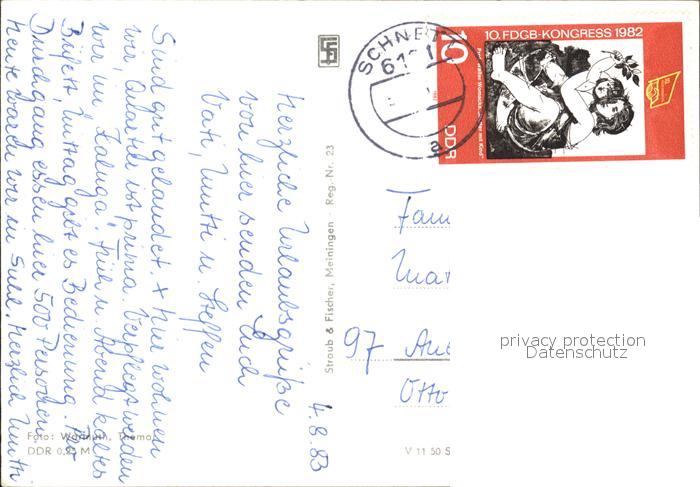 4.8.83
Herzliche Urlaubsgrüße
von hier senden Euch
Vati, Mutti u. Steffen
Sind gut gelandet. + Hier wohnen
wir, Quartier ist prima. Verpflegt werden
wir im "Kaluga". Früh u. Abend kaltes
Büfett, Mittag gibt es Bedienung. Pro
Durchgang essen hier 500 Personen.
Heute waren wir in Suhl. Herzlich Mutti
Foto: Warmuth, Themar
DDR 0,25 M
Straub & Fischer, Meiningen · Reg.-Nr. 23
V 11 50 S
SCHNETT
61
a
10. FDGB-KONGRESS 1982
10
DDR
Fam
97 Aue
Otto
privacy protection
Datenschutz